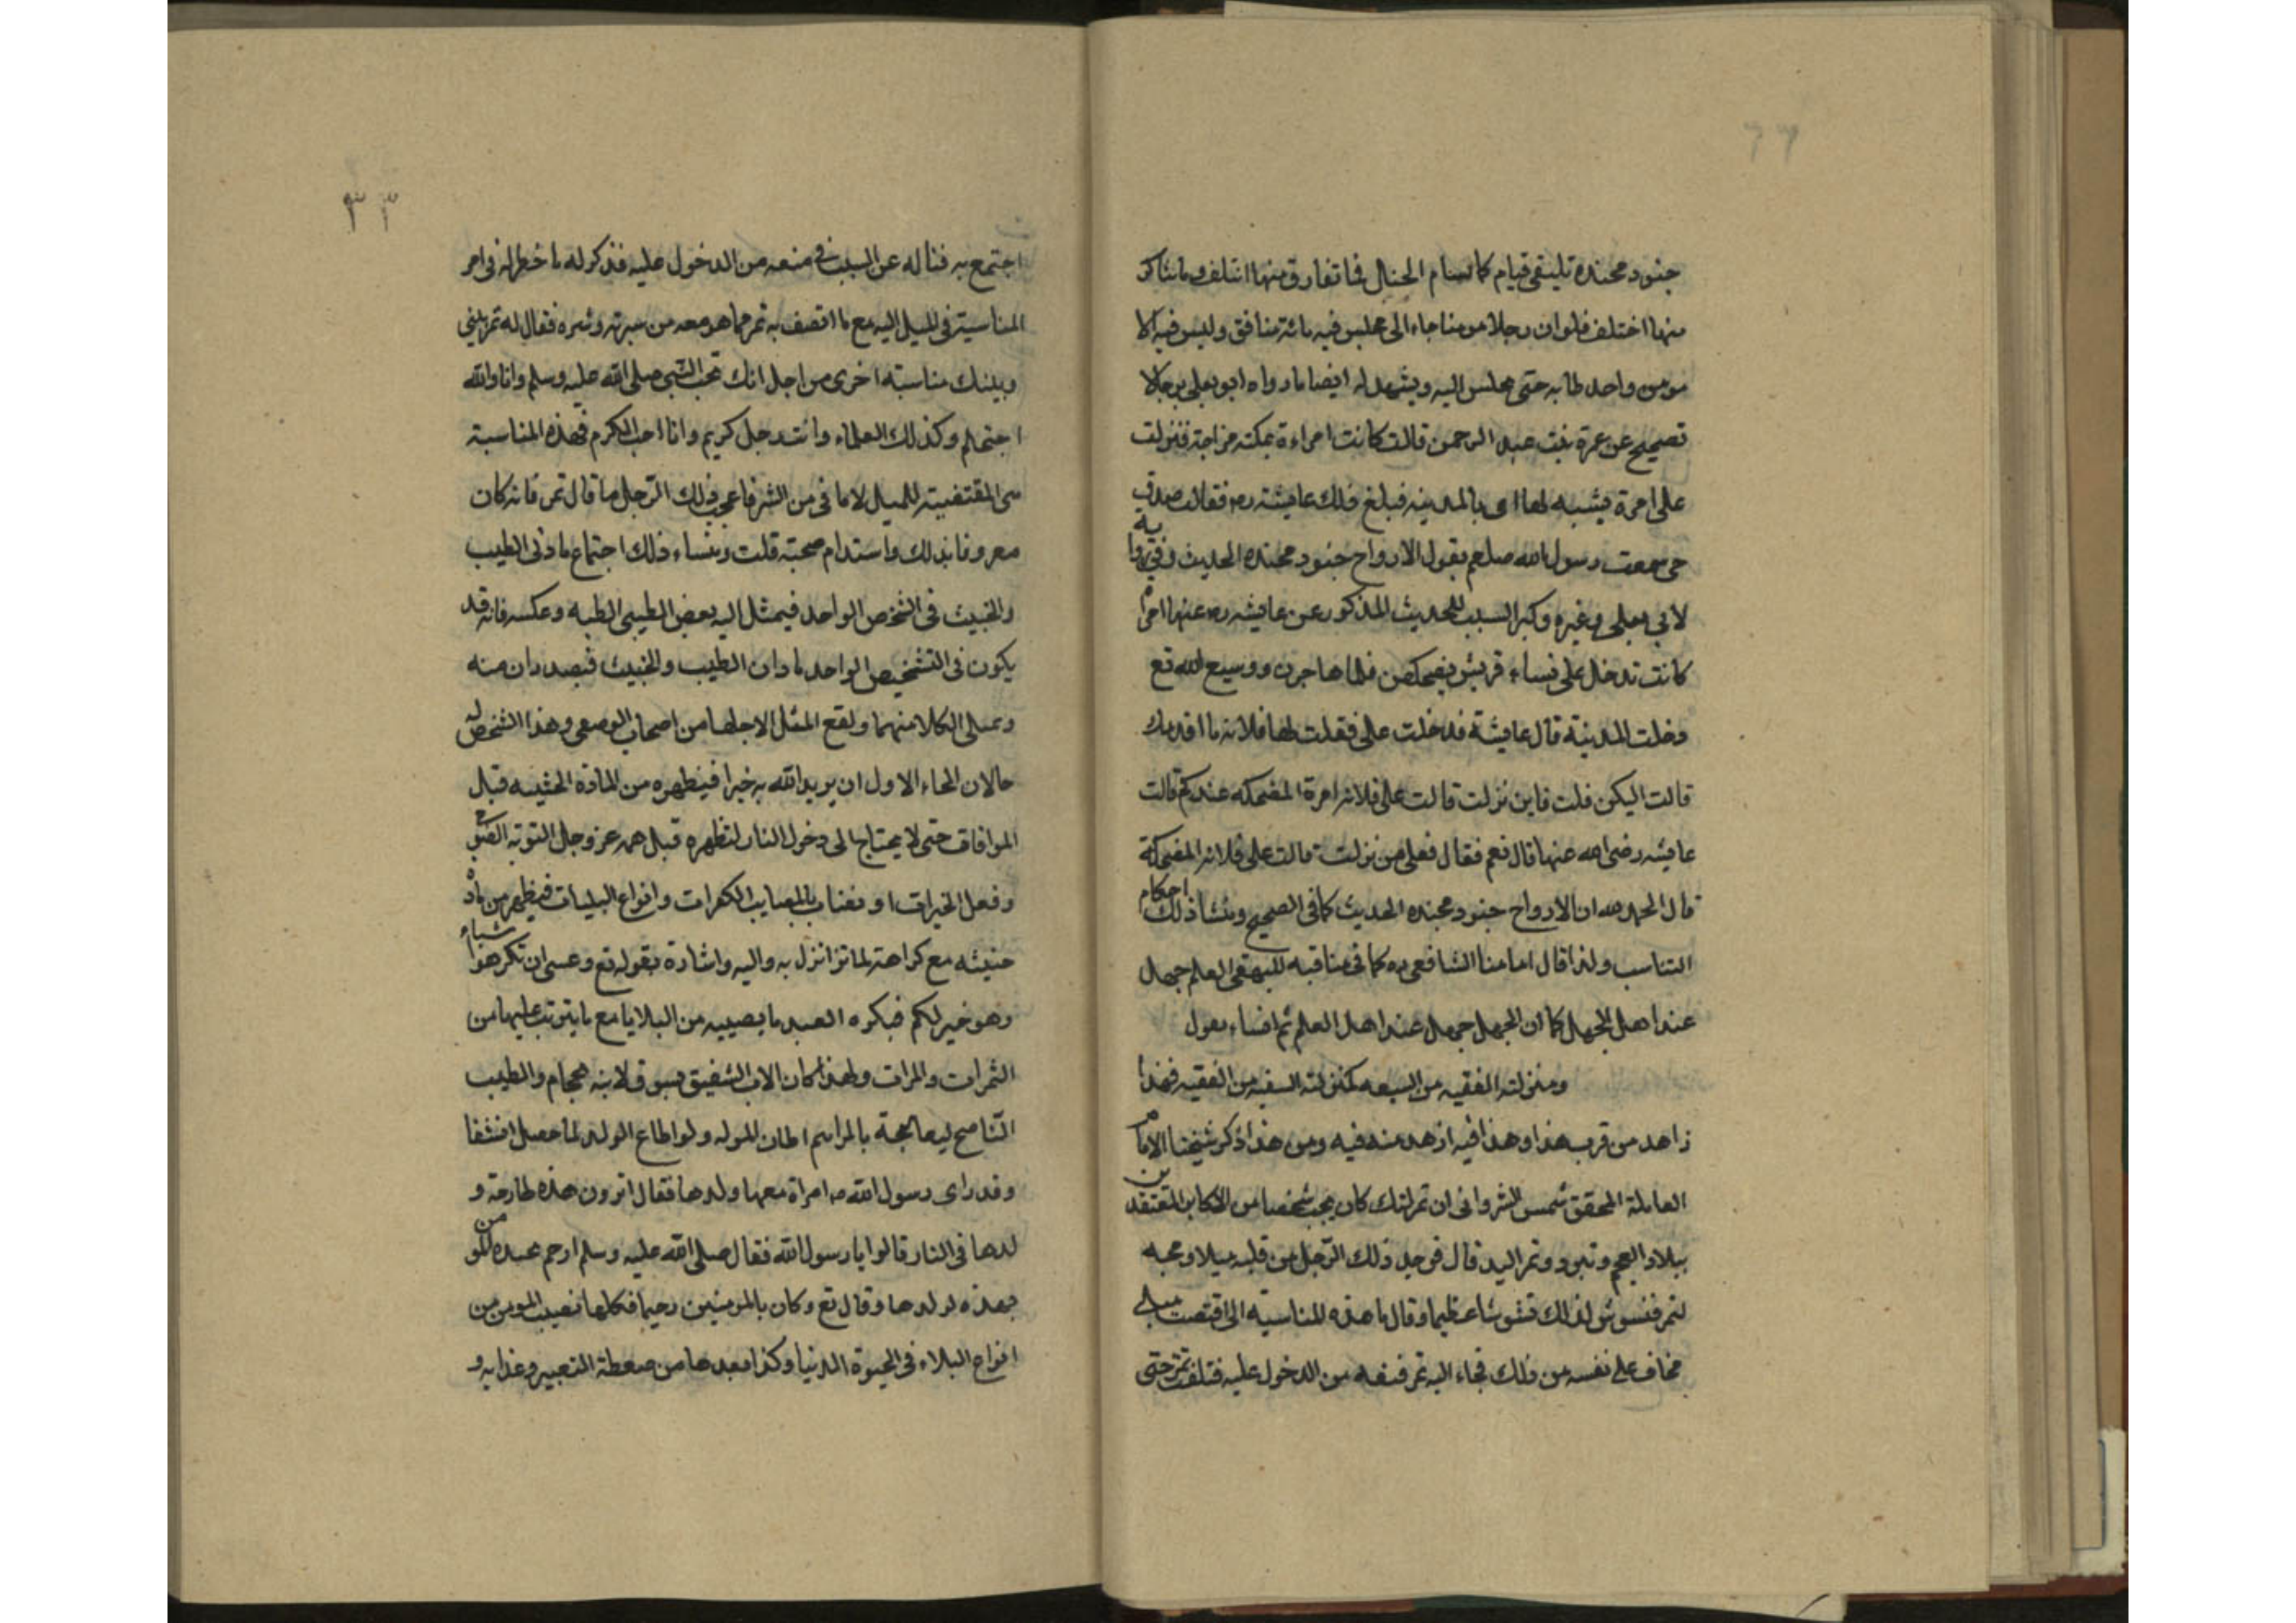 جنود مجنده تليقى قيام كالسام الحنال فما تفارق منها ائتلف وما تناكر
منها اختلف فلو ان رجلا مومنا جاء الى مجلس فيه مائة منافق وليس فيه الا
مومن واحد طابه حتى مجلس اليه ويشهد له ايضا ما رواه ابو يعلى برجالا
تصحيح عن عمرة بنت عبد الرحمن قالت كانت امراءة بمكة مزاجة فنزلت
على امرة يشبه لها اى بالمدينه فبلغ ذلك عايشه ره فقالت صدق
حى سمعت رسول الله صلعم يقول الارواح جنود مجنده الحديث وفي رواية
لابي يعلى وغيره وكبر السبب للحديث المذكور عن عايشه ره عنها امراة
كانت تدخل على نساء قريش يضحكهن فلما هاجرن ووسيع الله تع
دخلت المدينة قال عايشة فدخلت على فقلت لها فلانه ما اقدمك
قالت اليكن قلت فاين نزلت قالت على فلانه امرة المضحكه عندكم قالت
عايشه رضى الله عنها قال نعم فقال فعلى من نزلت قالت على فلانه المضحكة
قال الحمد لله ان الارواح جنود مجنده الحديث كما في الصحيح ومنشأ ذلك احكام
التناسب ولذا قال امامنا الشافعى ره كما في مناقبه للبيهقى العلم جهل
عند اهل الجهل كما ان الجهل جهل عند اهل العلم ثم انساء يقول
ومنزلته الفقيه من السيفه كمنزلته السفيه من الفقيه فهذا
زاهد من قرب هذا وهذا فيه ازهد منه فيه ومن هذا ذكر شيخنا الامام
العاملة المحقق شمس الشروانى ان تمرلنك كان يحب شخصا من الاكابر المعتقدين
ببلاد العجم وتبرد وتمر اليد قال فوجد ذلك الرجل من قلبه ميلا ومحبه
لتمر فتسوش لذلك تشوشا عظيما وقال ما هذه المناسية الى اقتضت ميلى
مخاف على نفسه من ذلك فجاء اليه تمر فنعه من الدخول عليه فتلفت تمر حتى
٣٣
اجتمع به فناله عن السبب في منعه من الدخول عليه فذكر له ما خطر له فى امر
المناسية فى الميل اليه مع ما اتصف به تمر مما هو معه من سيرته وشره فقال له تمر بينى
وبينك مناسبته اخرى من اجل انك تحب النبى صلى الله عليه وسلم وانا والله
احتهلم وكذلك العلماء وانت رجل كريم وانا احب الكرم فهذه المناسبة
هى المقتضيته للميل لا ما فى من الشر فاعجب ذلك الرجل ما قال تمر فانه كان
معروفا بذلك واستدام صحبته قلت ومنساء ذلك اجتماع مادتى الطيب
والخبيث فى الشخص الواحد فيمثل اليه بعض الطيبى الطبه وعكسه فانه قد
يكون فى التشخيص الواحد مادان الطيب والخبيث فيصدران منه
وعلى الكلا منهما ولقع المثل الاجلها من اصحاب الوصفى وهذا الشخص له
حالان المحاء الاول ان يريد الله به خيرا فيطهره من المادة الخثيسه قبل
الموافاق حتى لا يحتاج الى دخول النار لتطهره قبل همه عز وجل التوته النصوح
وفعل الخيرات او مغناب بالمصايب الكفرات وانواع البليات فيطهر من مادة
خبيثه مع كراهته لما تزانزل به واليه واشارة بقوله تع وعسى ان تكرهوا شياء
وهو خير لكم فبكره العبد ما يصيبه من البلايا مع ما يترتب عليها من
الثمرات والمرات ولهذا كان الاب الشفيق يسوق لابنه حجام والطبيب
الناصح ليعالجة بالمراسم اطان للموله ولو اطاع الولد لما حصل انشفا
وقد راى رسول الله صه امراة معها ولدها فقال اترون هذه طارحة و
لدها فى النار قالوا يا رسول الله فقال صلى الله عليه وسلم ارحم بعبده للمو من
بهذه لولدها وقال تع وكان بالمومنين رحيما فكلها نصيب المومن من
انواح البلاء فى الحيوة الدنيا وكذا بعدها من صغطة القبر وعذابه و